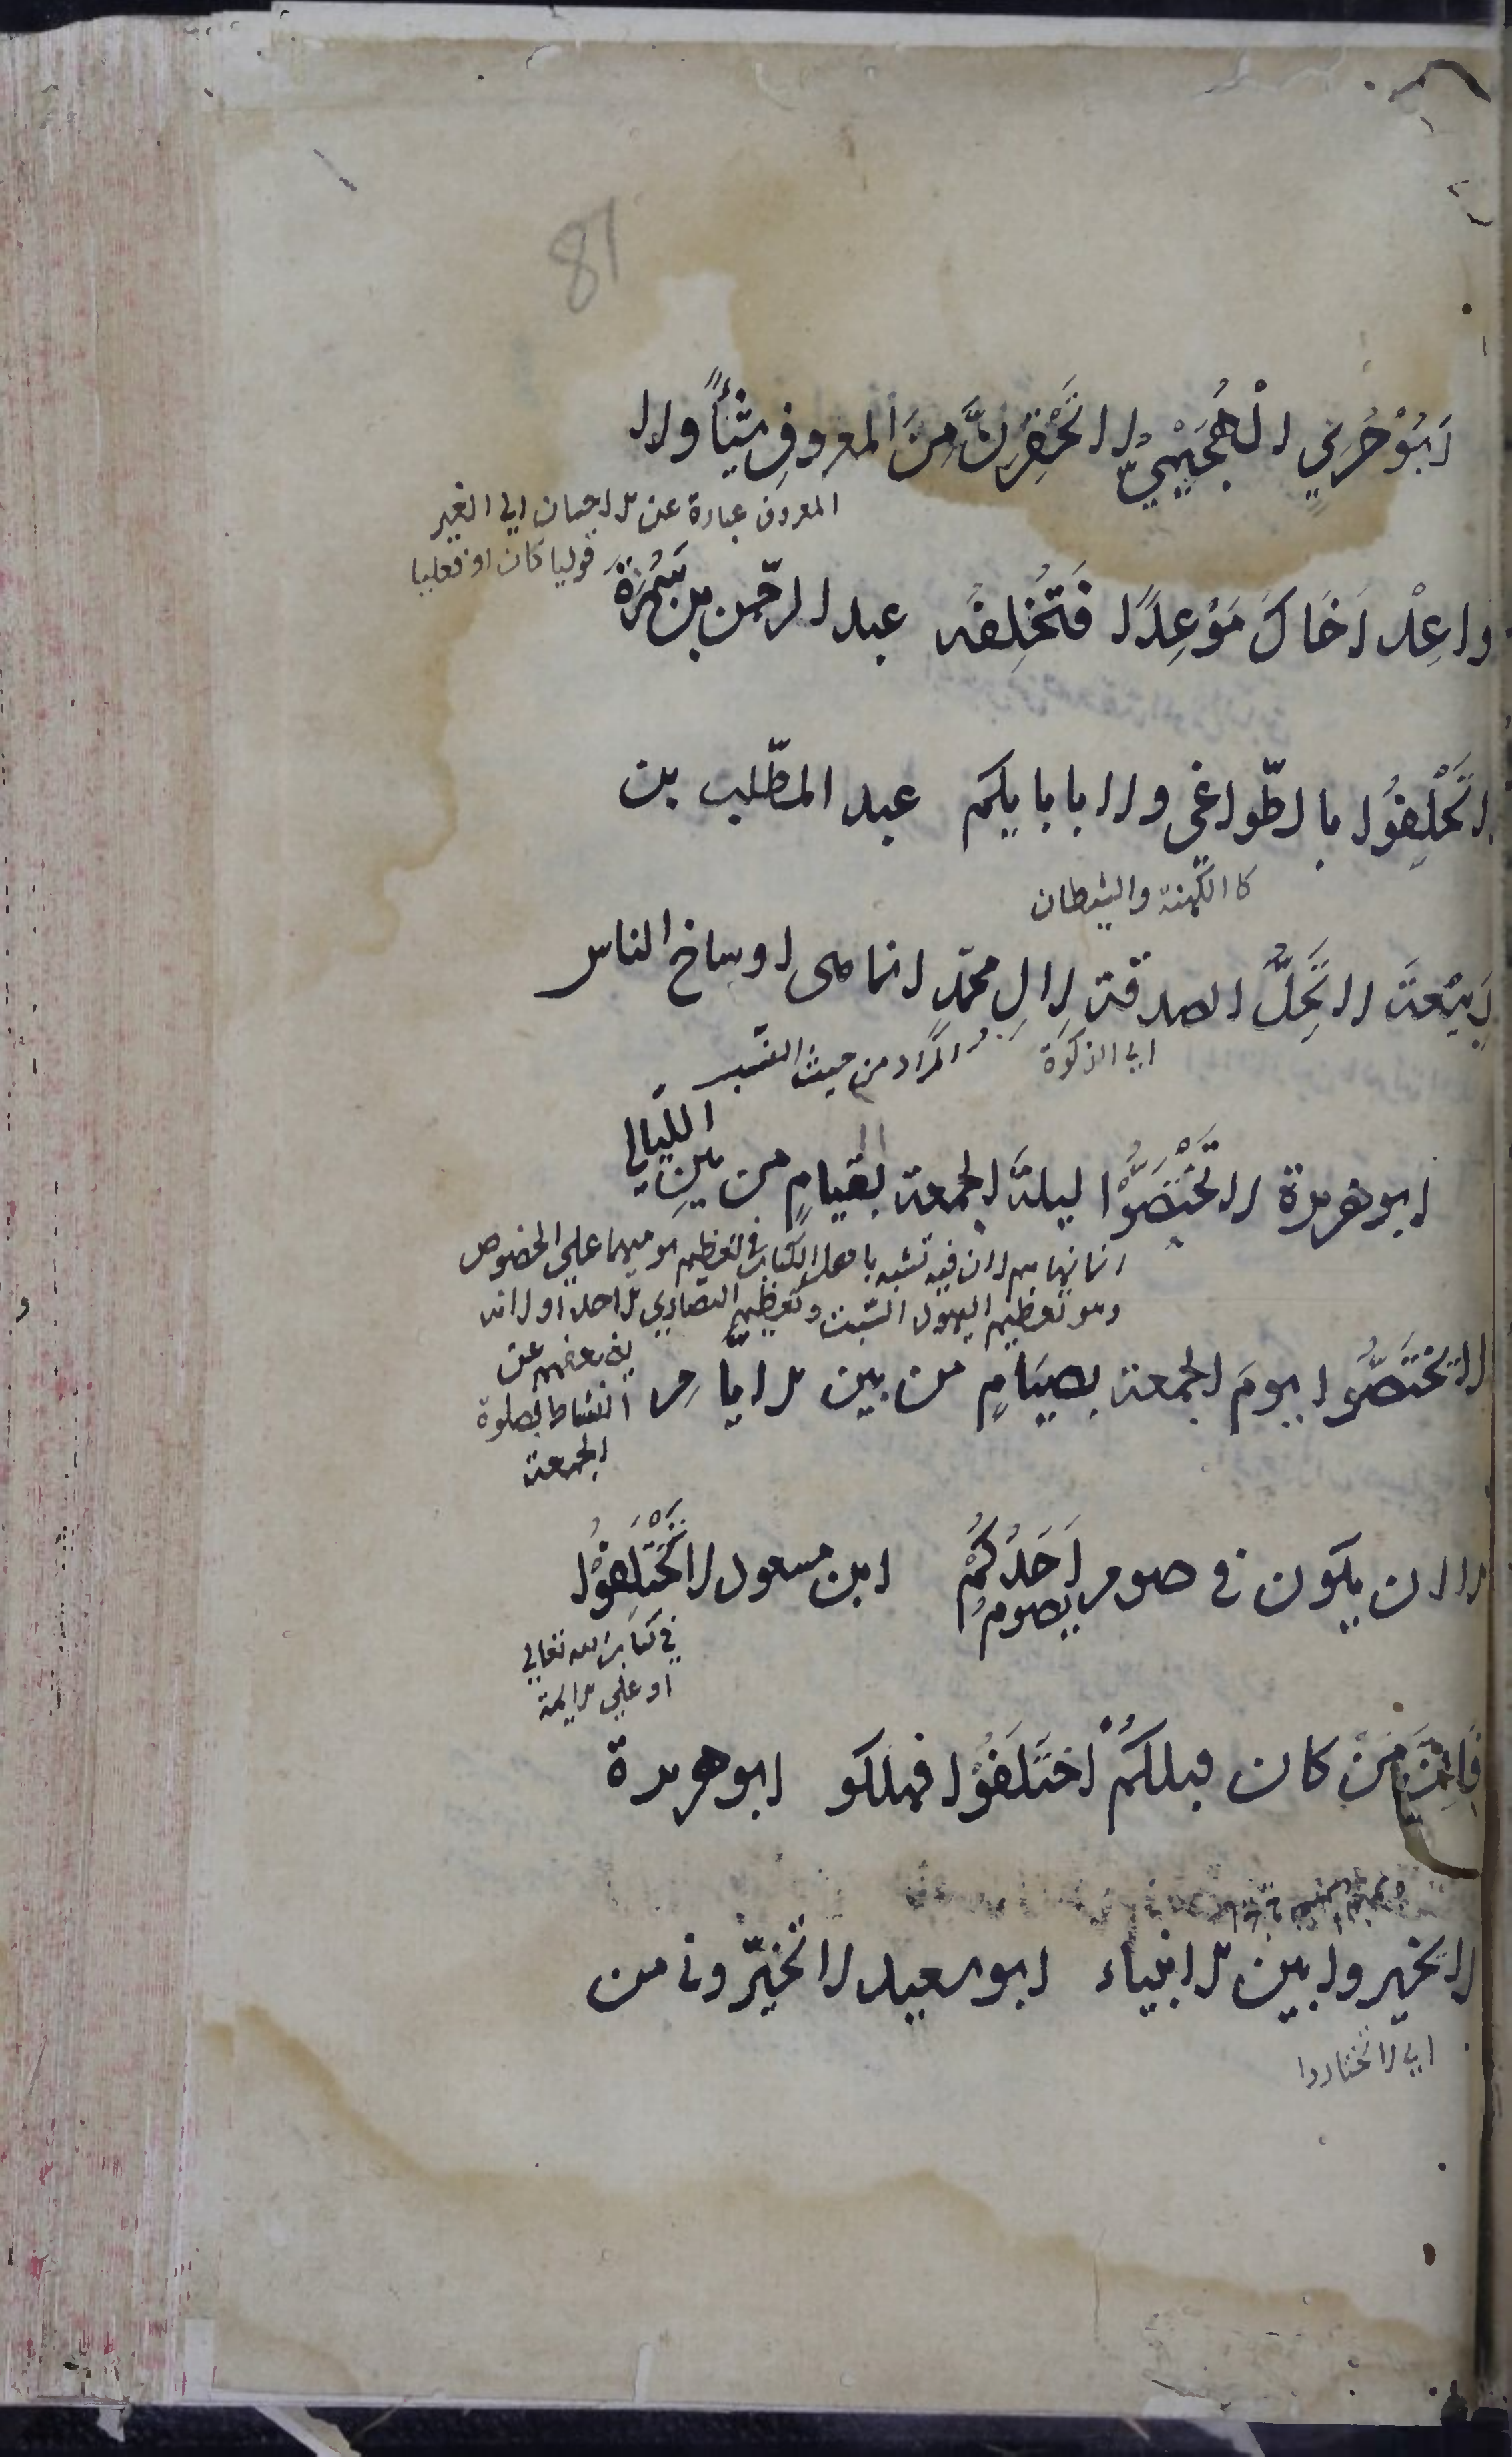 81
اَبُوْجُرَيٍّ الْهُجَيْمِيُّ لا تَحْقِرَنَّ مِنَ المعروفِ شَيْأً ولا
المعروف عبارة عن الاحسان الى الغير
قوليا كان او فعليا
واعِدْ اَخَاكَ مَوْعِدًا فَتُخْلِفَه عبد الرّحمن بن سَمُرَةَ
لا تَحْلِفُوا بالطّواغي ولا بابايكم عبد المطّلب بن
كا الكهنة والشيطان
رَبِيْعَةَ لا تَحِلُّ الصدقة لِالِ محمّدٍ انما هى اوساخ الناس
اى الزكوة
المراد من حيث
ابو هريرة لا تَخْتَصُّوْا ليلةَ الجمعة بقيامٍ من بينِ اللّيالي
انما نهاهم لان فيه تشبه باهل الكتاب في تعظيم يوميهما على الخصوص
وهو تعظيم اليهود السّبت وتعظيم النصارى الاحد او لانه
يضعفهم عن
النشاط لصلوة
الجمعة
لا تختَصُّوا يومَ الجمعة بصيَامٍ من بين الايّامِ
الا ان يكون في صوم يصومُ اَحَدُكُمْ ابن مسعود لا تَخْتَلِفُوْا
في كتاب الله تعالى
او على الايمة
فَاِنَّ مَنْ كان قبلكُمْ اختَلَفُوْا فهلكو ابو هريرة
لا تخيروا بين الانبياء ابو سعيد لا تخيّروني من
اى لا تختاروا